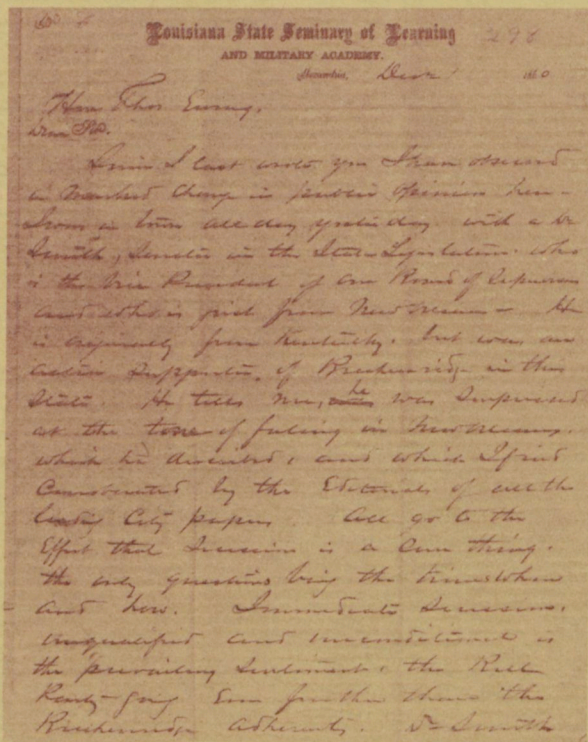 298
Louisiana State Seminary of Learning
AND MILITARY ACADEMY.
Alexandria, Decr 1 1860
Hon Thos Ewing,
Dear Sir.
Since I last wrote you I have observed
a marked change in public opinion here -
I was in town all day yesterday with a Dr
Smith, Senator in the State Legislature who
is the Vice President of our Board of Supervisors
and who is just from New Orleans - He
is originally from Kentucky, but was an
active supporter of Breckenridge in this
State. He tells me, he was surprised
at the tone of feeling in New Orleans,
which he described, and which I find
corroborated by the Editorials of all the
leading City papers. All go to the
Effect that Secession is a sure thing,
the only questions being the time when
and how. Immediate Secession,
unqualified and unconditional is
the prevailing sentiment, the Bell
Party going Even further than the
Breckenridge adherents. Dr Smith